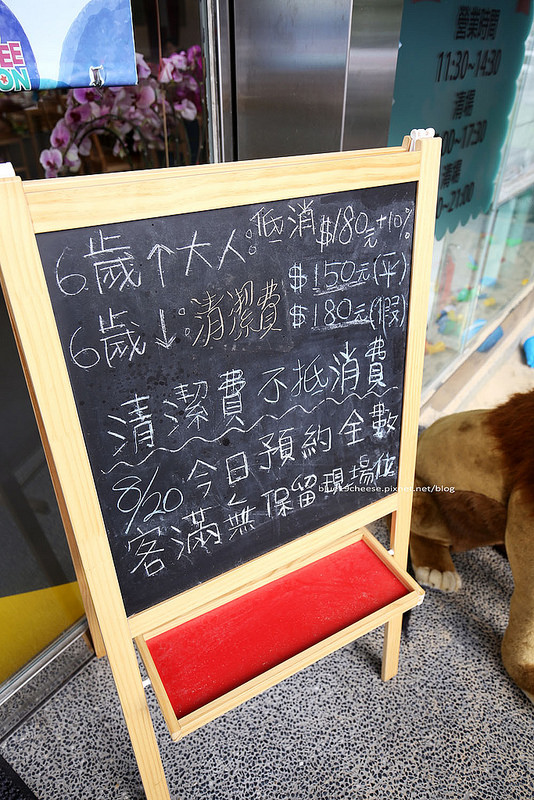 EE
ON
營業時間
11:30~14:30
清場
00~17:30
清場
0~21:00
6歲↑大人:低消$180元+10%
6歲↓:清潔費 $150元(平)
$180元(假)
清潔費不抵消費
8/20 今日預約全數
客滿無保留現場位
blue19cheese.pixnet.net/blog